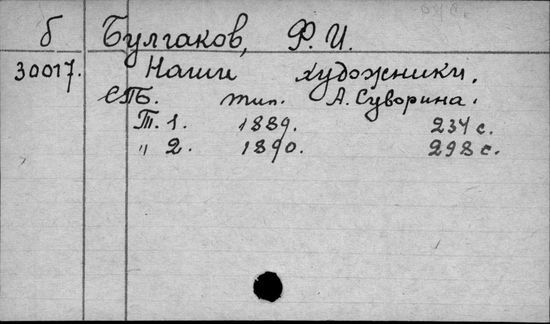 б Булгаков, Ф. И.
30017. Наши художники.
СПБ. тип. А. Суворина.
Т. 1. 1889. 234 с.
" 2. 1890. 298 с.